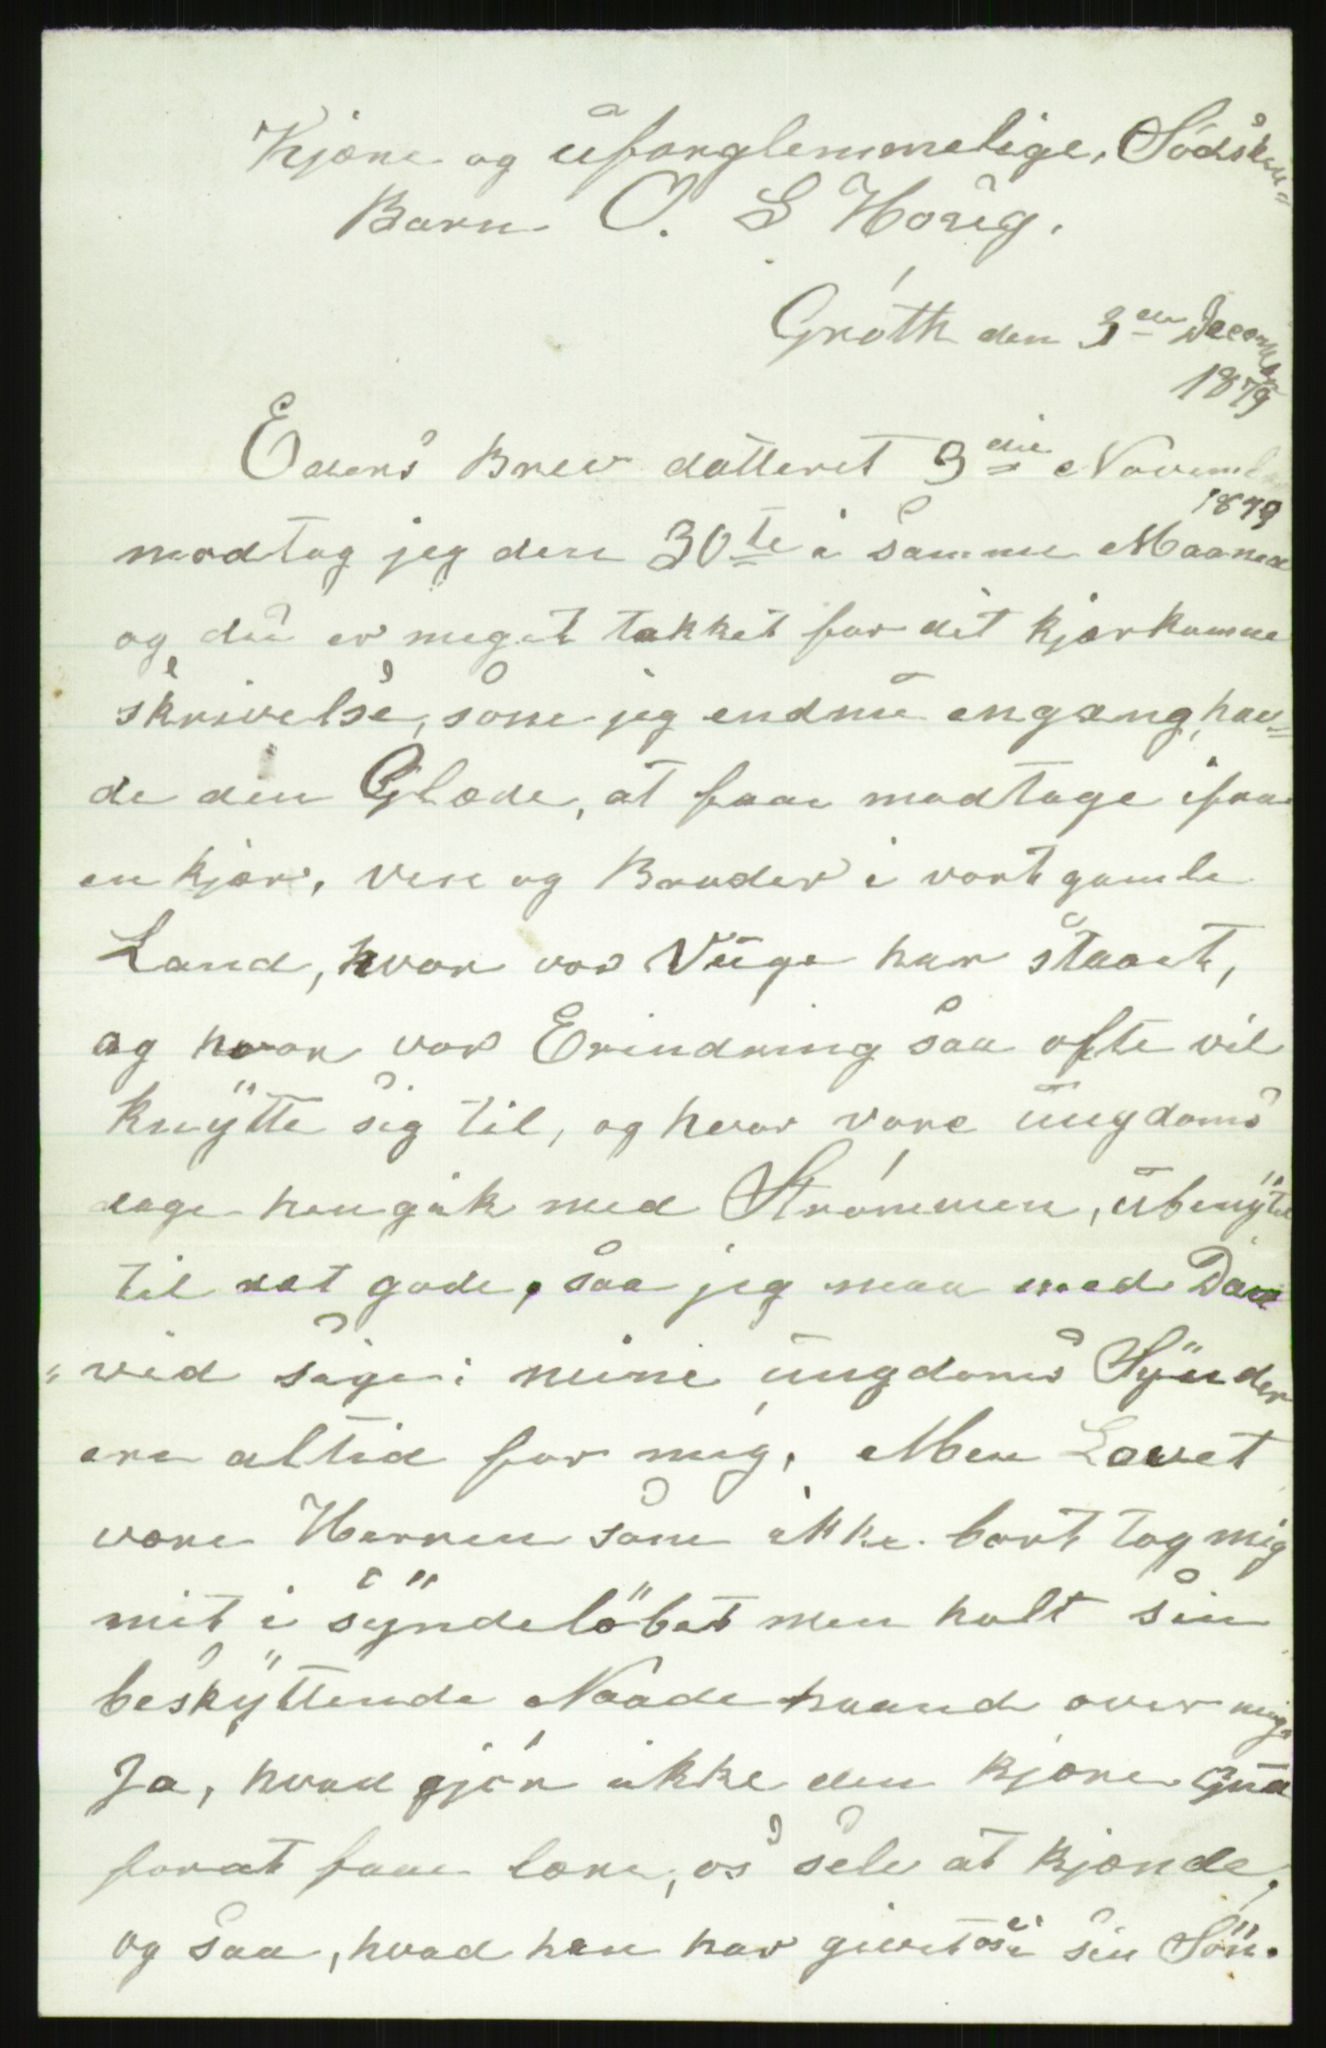 Kjære og uforglemmelige, Södsken-
Barn O. S Houg.
Gróth den 3den December
1879
Eders Brev datteret 3die Novemb
1879
modtog jeg den 30te i samme Maaned
og du er meget takket for dit kjærkomne
skrivelse, som jeg endnu engang, hav-
de den Glæde, at faae modtage ifraa
en kjær, ven og Broder i vort gamle
Land, hvor vor Vuge har staaet,
og hvor vor Erindring saa ofte vil
knytte sig til, og hvor vore ungdoms
dage hengik med Strómmen, ubenyttet
til det gode, saa jeg maa med Dav
"vid sige: mine ungdoms Synder
ere altid for mig, Men Lovet
være Herren som ikke bort tog mig
mit i syndelöbet men holt sin
beskyttende Naade haand over mig.
Ja, hvad gjór ikke den kjære Gud
forat faae lære, os sele at kjænde,
og saa, hvad han har givet os i sin Sön.